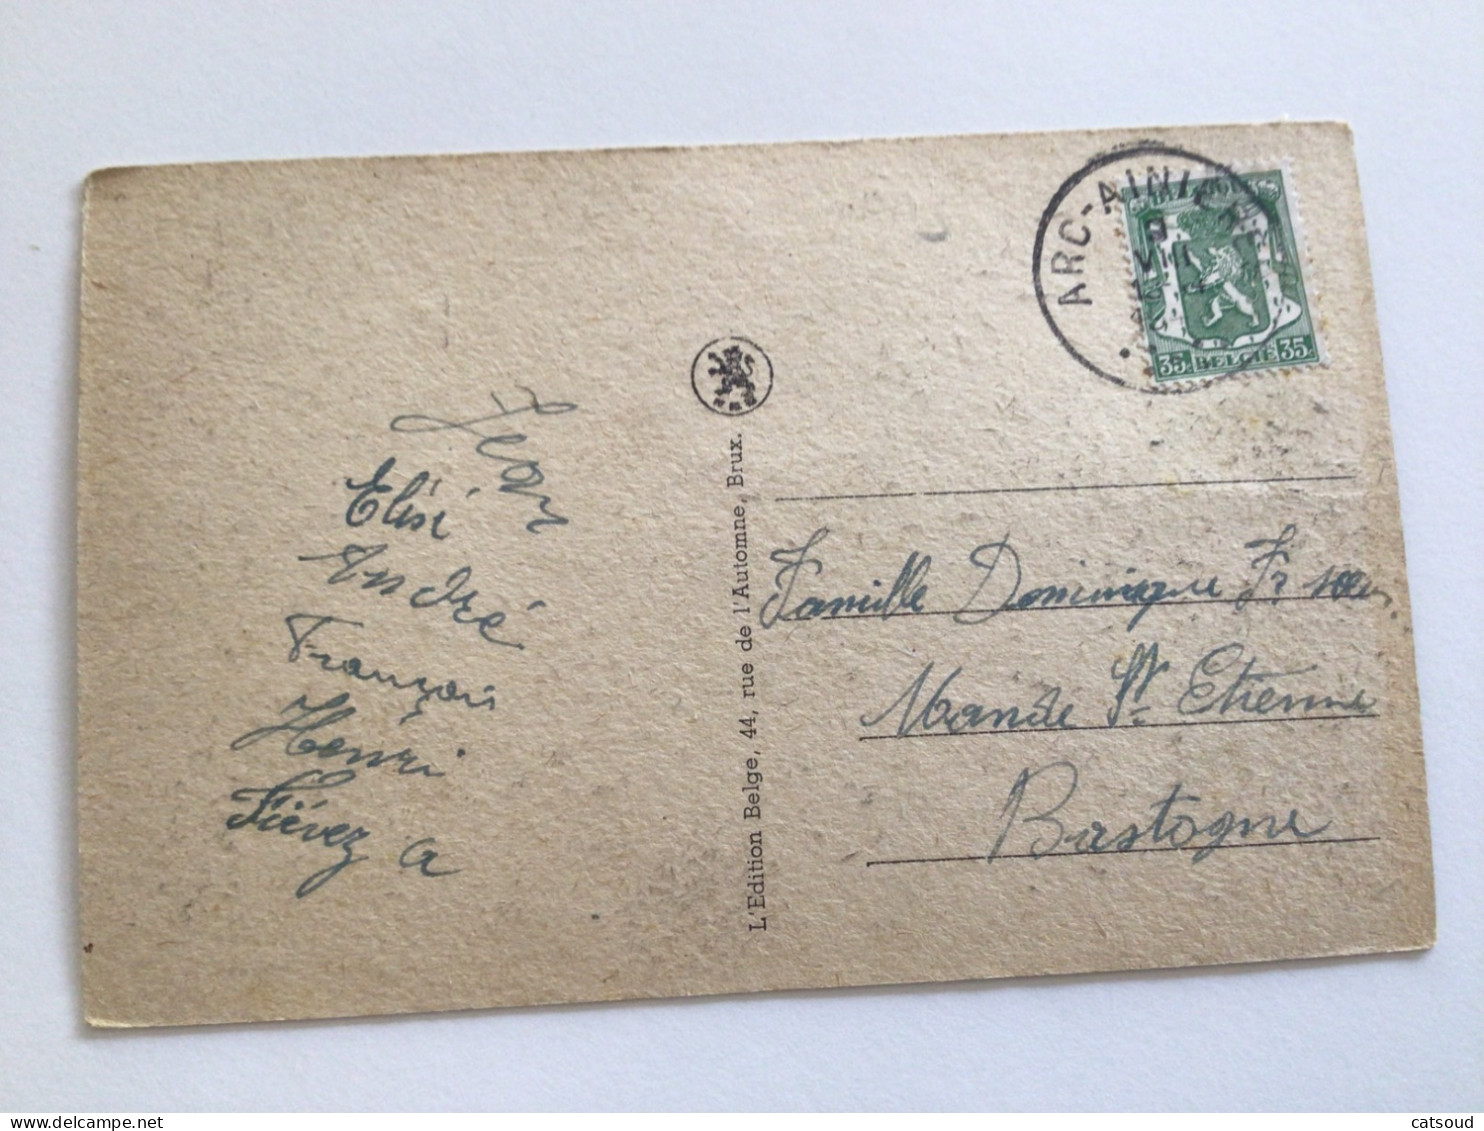 Jean
Elisé
André
François
Henri
Fiévez a
L'Edition Belge, 44, rue de l'Automne, Brux.
ARC-AINIÈRES
9
VIII
35c BELGIË 35c
Famille Dominique Fr
Mande St Etienne
Bastogne
catsoud